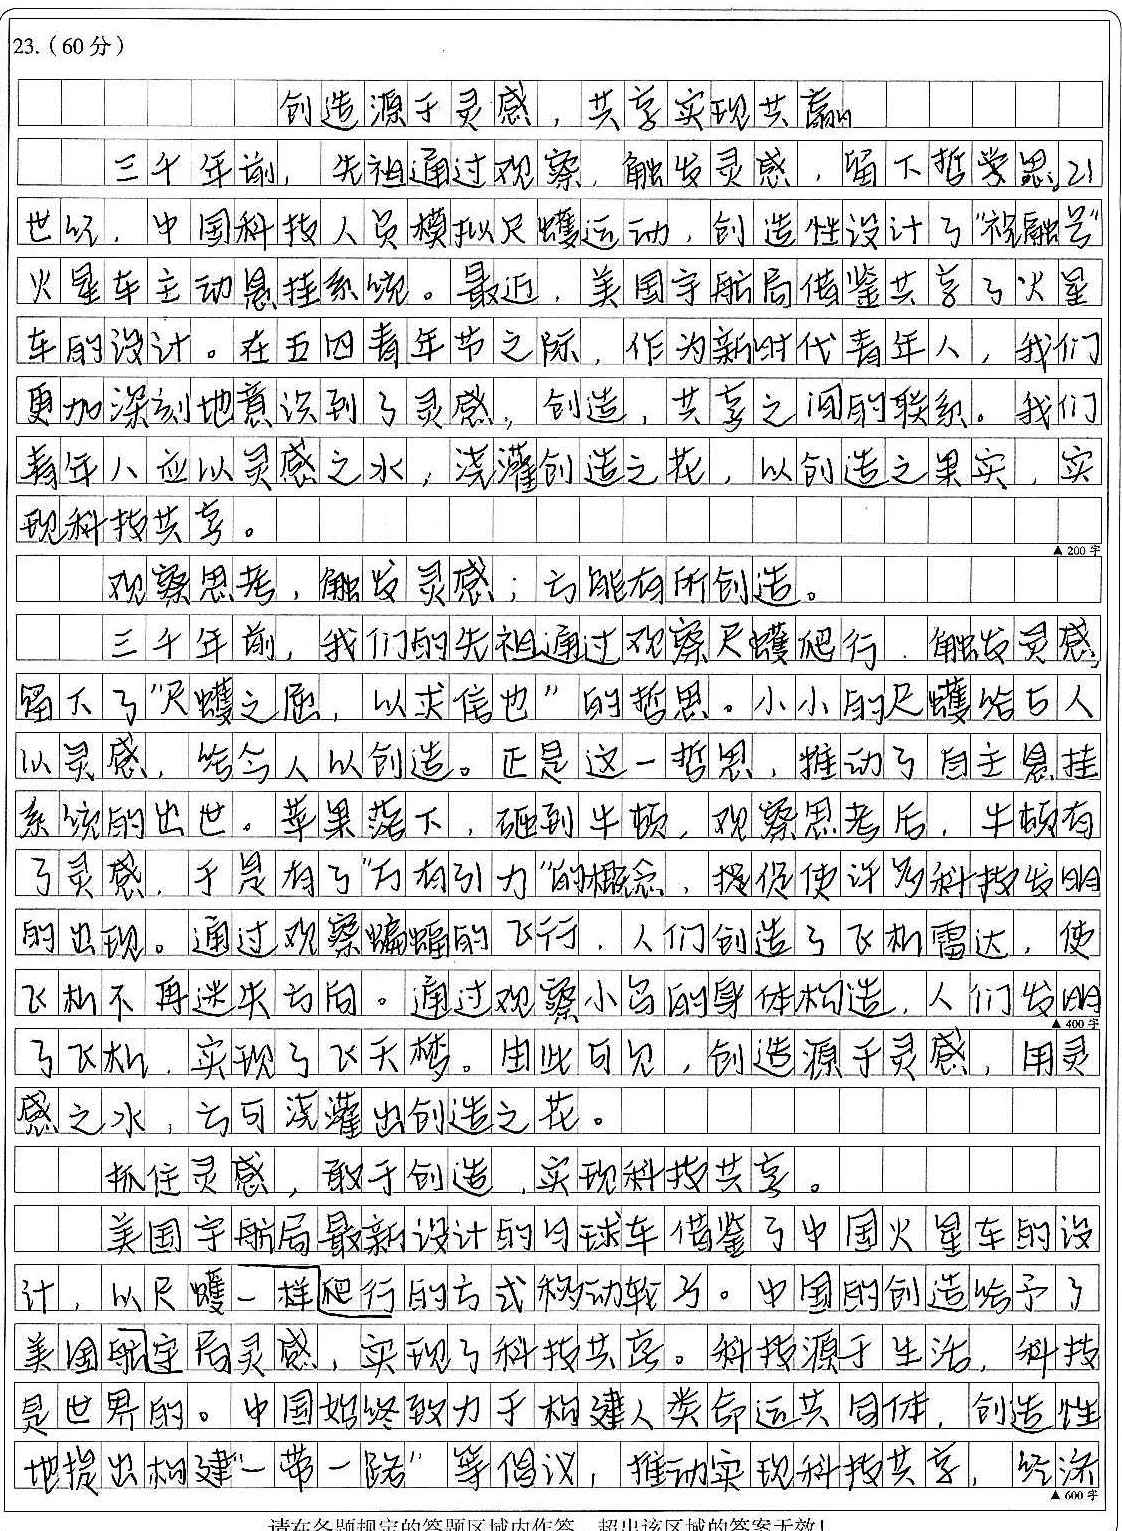 23.（60分）
创造源于灵感，共享实现共赢
三千年前，先祖通过观察，触发灵感，留下哲学思。21
世纪，中国科技人员模拟尺蠖运动，创造性设计了“祝融号”
火星车主动悬挂系统。最近，美国宇航局借鉴共享了火星
车的设计。在五四青年节之际，作为新时代青年人，我们
更加深刻地意识到了灵感，创造，共享之间的联系。我们
青年人应以灵感之水，浇灌创造之花，以创造之果实，实
现科技共享。
▲200字
观察思考，触发灵感；方能有所创造。
三千年前，我们的先祖通过观察尺蠖爬行，触发灵感，
留下了“尺蠖之屈，以求信也”的哲思。小小的尺蠖给古人
以灵感，给今人以创造。正是这一哲思，推动了自主悬挂
系统的出世。苹果落下，砸到牛顿，观察思考后，牛顿有
了灵感，于是有了“万有引力”的概念，提促使许多科技发明
的出现。通过观察蝙蝠的飞行，人们创造了飞机雷达，使
飞机不再迷失方向。通过观察小鸟的身体构造，人们发明
▲400字
了飞机，实现了飞天梦。由此可见，创造源于灵感，用灵
感之水，方可浇灌出创造之花。
抓住灵感，敢于创造，实现科技共享。
美国宇航局最新设计的月球车借鉴了中国火星车的设
计，以尺蠖一样爬行的方式移动轮子。中国的创造给予了
美国航宇局灵感，实现了科技共享。科技源于生活，科技
是世界的。中国始终致力于构建人类命运共同体，创造性
地提出构建“一带一路”等倡议，推动实现科技共享，经济
▲600字
请在各题规定的答题区域内作答，超出该区域的答案无效！